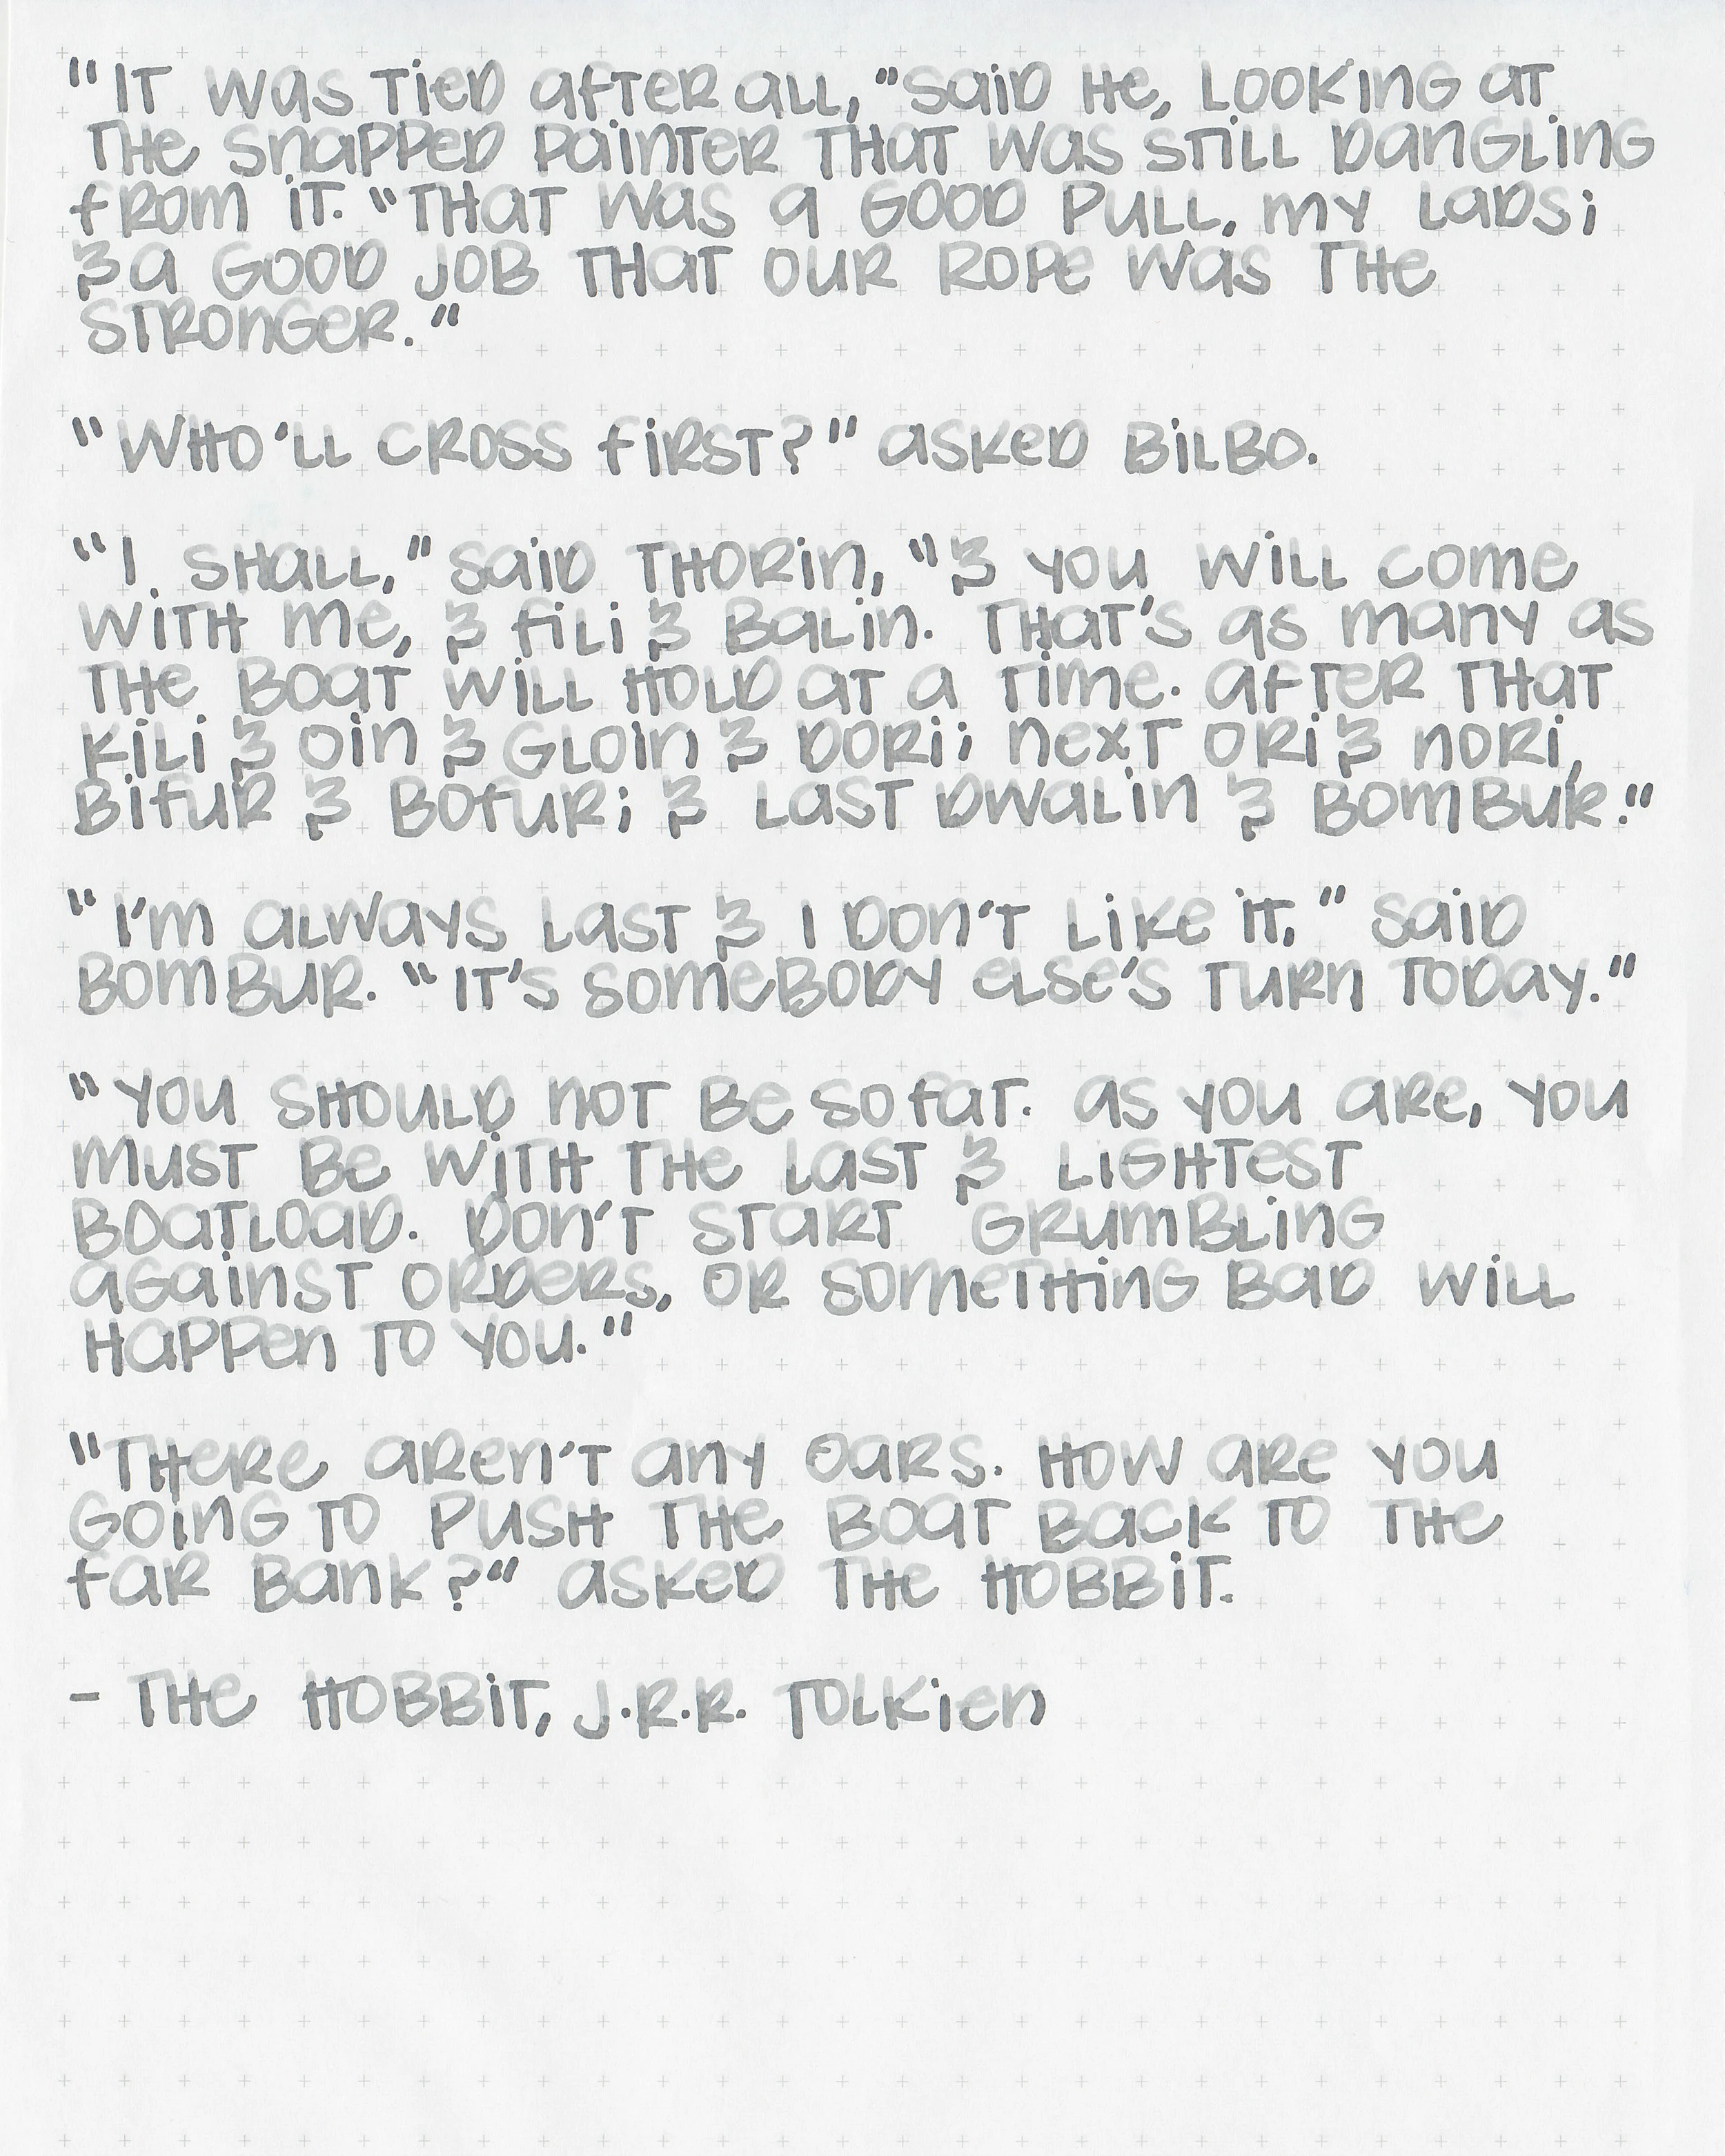 "It was tied after all," said he, looking at
the snapped painter that was still dangling
from it. "That was a good pull, my lads;
& a good job that our rope was the
stronger."
"Who'll cross first?" asked Bilbo.
"I shall," said Thorin, "& you will come
with me, & Fili & Balin. That's as many as
the boat will hold at a time. After that
Kili & Oin & Gloin & Dori; next Ori & Nori,
Bifur & Bofur; & last Dwalin & Bombur."
"I'm always last & I don't like it," said
Bombur. "It's somebody else's turn today."
"You should not be so fat. As you are, you
must be with the last & lightest
boatload. Don't start grumbling
against orders, or something bad will
happen to you."
"There aren't any oars. How are you
going to push the boat back to the
far bank?" asked the hobbit.
- The Hobbit, J.R.R. Tolkien